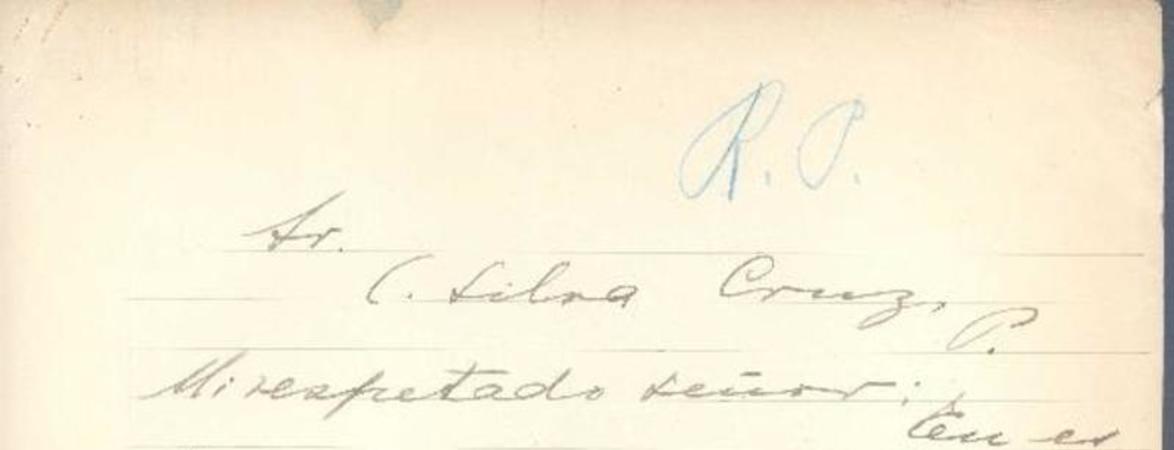 R. P.
Sr.
C. Silva Cruz,
P.
Mi respetado señor:
En es